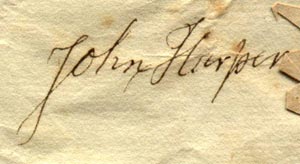 John Harper